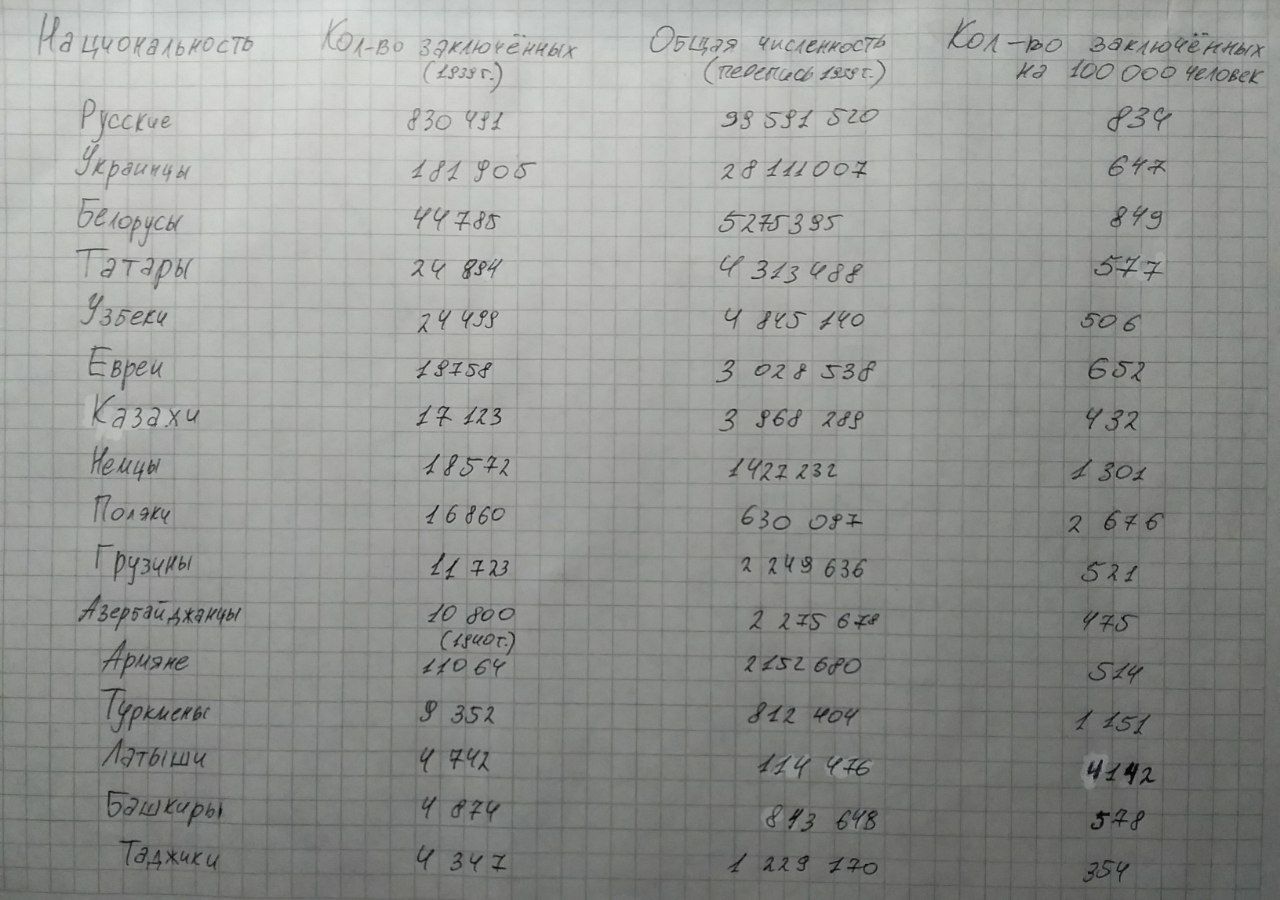 Национальность Кол-во заключённых Общая численность Кол-во заключённых
(1939г.) (перепись 1939г.) на 100 000 человек
Русские 830 491 99 591 520 834
Украинцы 181 905 28 111 007 647
Белорусы 44 785 5 275 395 849
Татары 24 894 4 313 488 577
Узбеки 24 499 4 845 140 506
Евреи 19758 3 028 538 652
Казахи 17 123 3 968 289 432
Немцы 18572 1427 232 1 301
Поляки 16860 630 097 2 676
Грузины 11 723 2 249 636 521
Азербайджанцы 10 800 2 275 678 475
(1940г.)
Армяне 11064 2152 680 514
Туркмены 9 352 812 404 1 151
Латыши 4 742 114 476 4142
Башкиры 4 874 843 648 578
Таджики 4 347 1 229 170 354